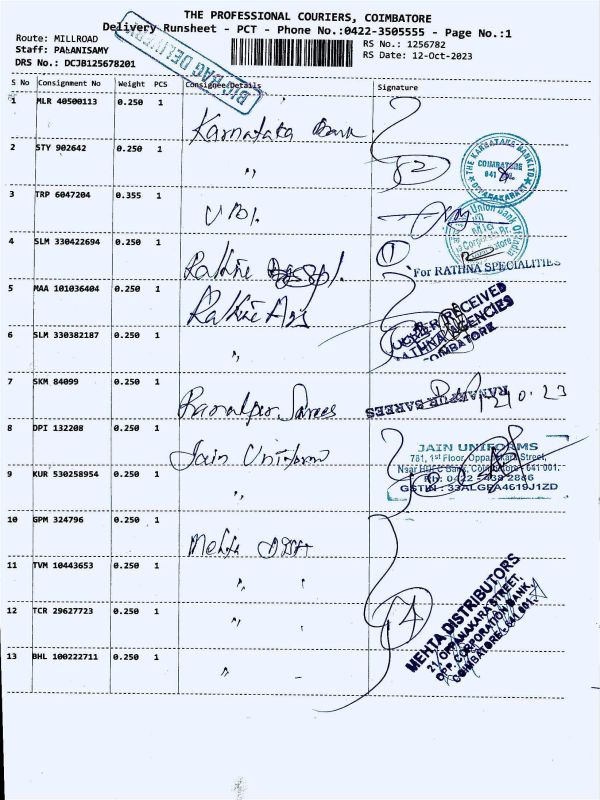 THE PROFESSIONAL COURIERS, COIMBATORE
Delivery Runsheet - PCT - Phone No.:0422-3505555 - Page No.:1
Route: MILLROAD
Staff: PALANISAMY
DRS No.: DCJB125678201
RS No.: 1256782
RS Date: 12-Oct-2023
BIG BAG DELIVERY
S No Consignment No Weight PCS Consignee Details Signature
1 MLR 40500113 0.250 1 Karnataka Bank
2 STY 902642 0.250 1 "
THE KARNATAKA BANK LTD
COIMBATORE
3 TRP 6047204 0.355 1 UBI.
Union Bank Of India
4 SLM 330422694 0.250 1 Rathne
For RATHNA SPECIALITIES
5 MAA 101036404 0.250 1 Rathne
6 SLM 330382187 0.250 1 "
RECEIVED
RATHNA AGENCIES
COIMBATORE
7 SKM 84099 0.250 1 Ranakpur Sarees
RANAKPUR SAREES
8 DPI 132208 0.250 1 Jain Uniform
JAIN UNIFORMS
781, 1st Floor, Oppanakara Street,
Near HDFC Bank, Coimbatore - 641 001.
GSTIN : 33ALGPA4619J1ZD
9 KUR 530258954 0.250 1 "
10 GPM 324796 0.250 1 Mehta
11 TVM 10443653 0.250 1 " "
12 TCR 29627723 0.250 1 "
13 BHL 100222711 0.250 1 "
MEHTA DISTRIBUTORS
21, OPPANAKARA STREET,
OPP. CORPORATION BANK,
COIMBATORE-641 001.